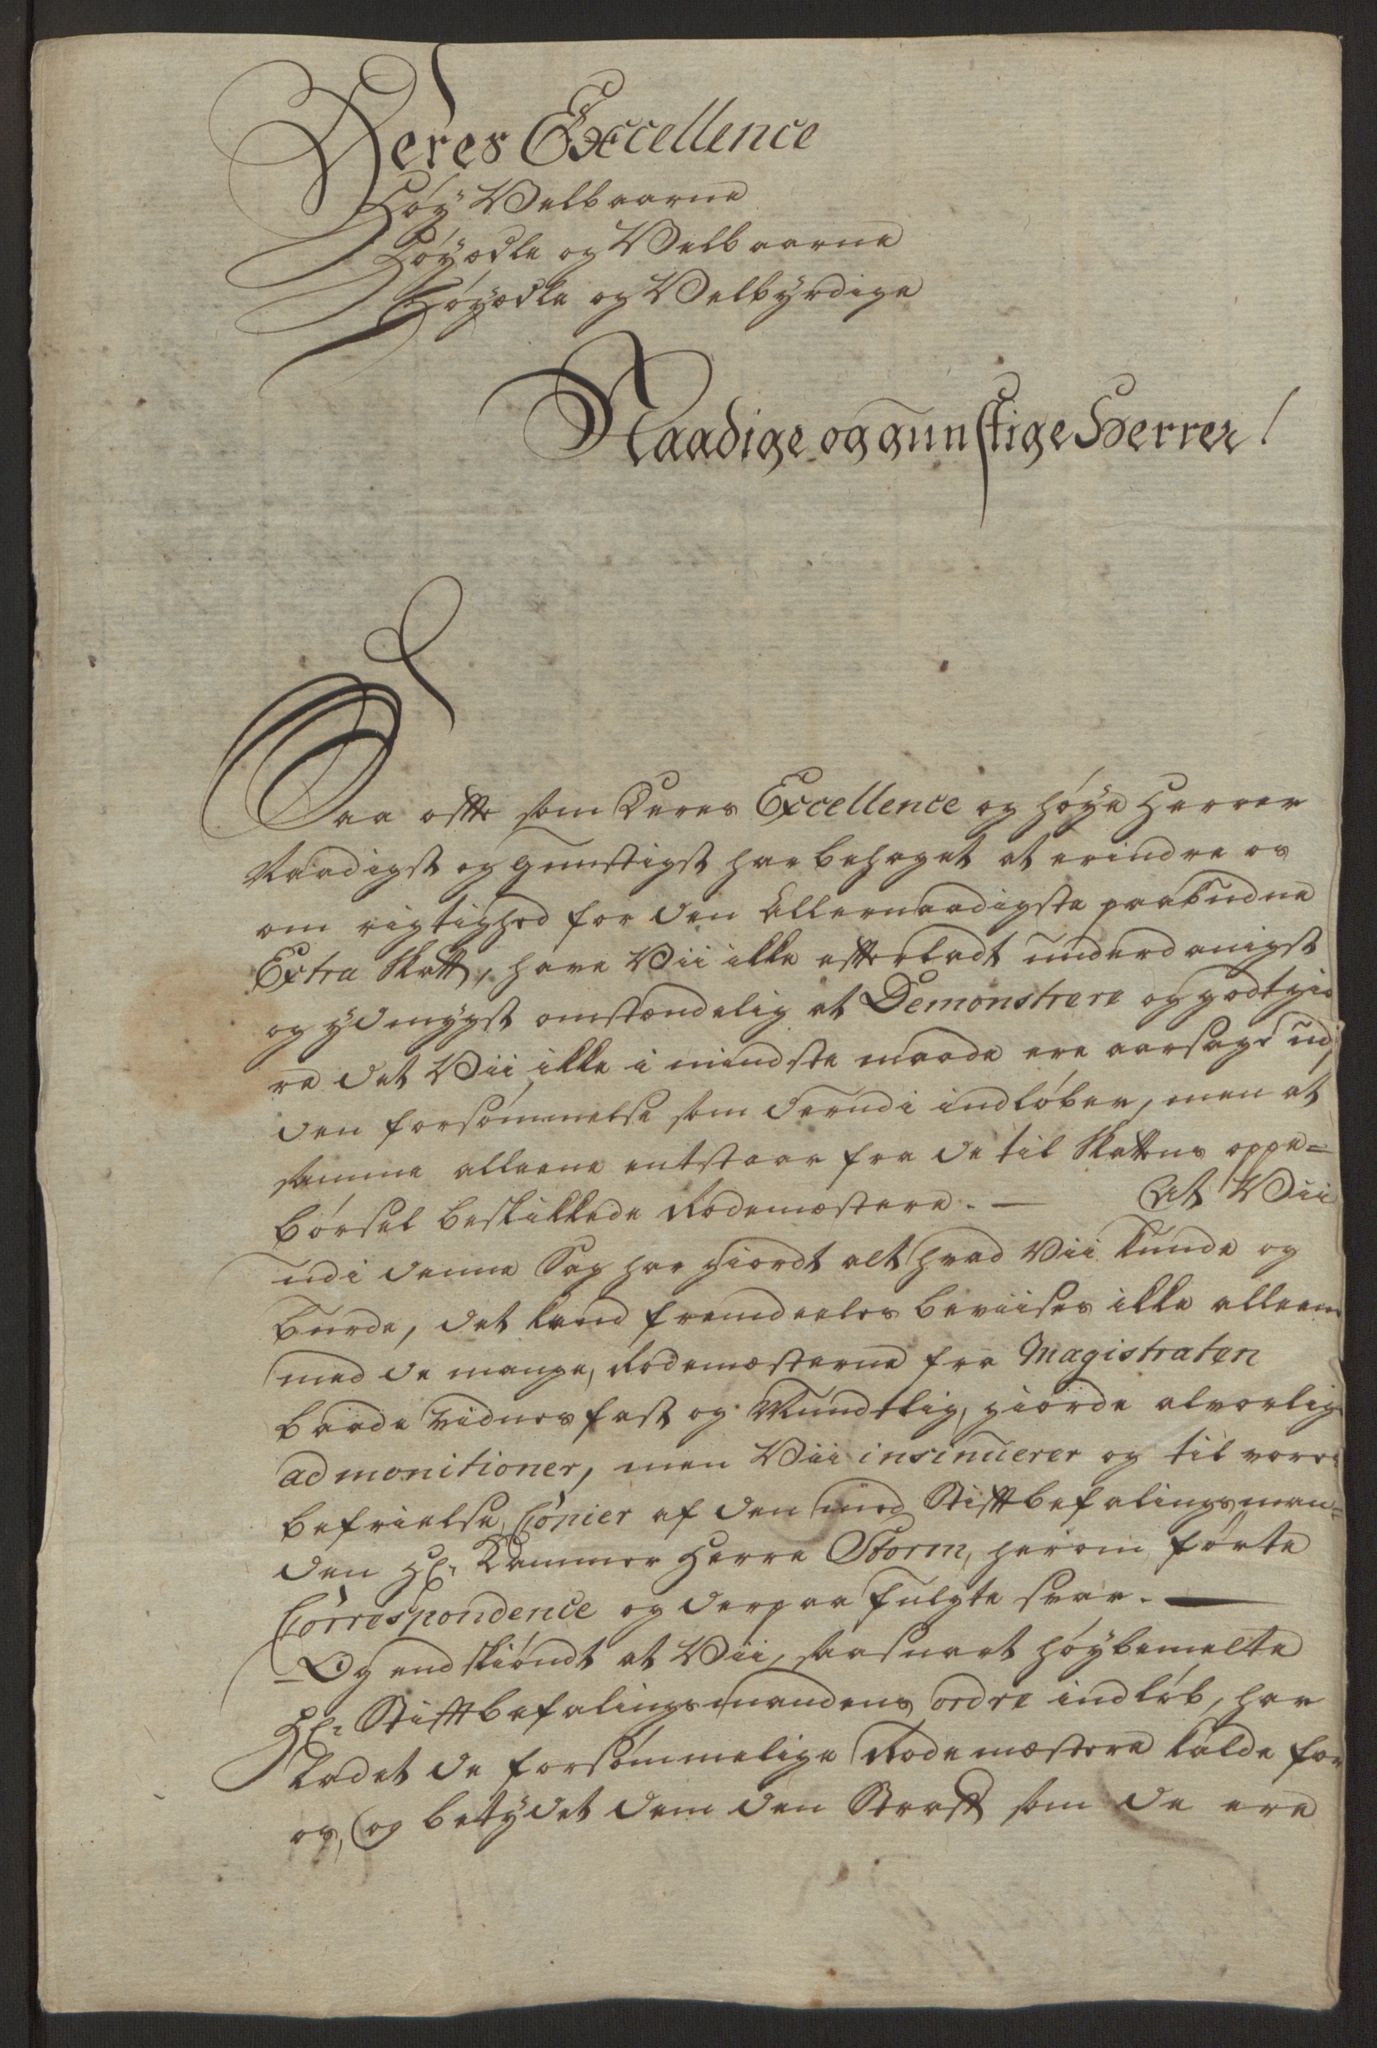 Deres Excellence
Høy Velbaarne
Høyædle og Velbaarne
Høyædle og Velbyrdige
Naadige og gunstige Herrer!
Saa offte som Deres Excellence og høye Herrer
Naadigst og gunstigst har behaget at erindre os
om rigtighed for den Allernaadigste paabudne
Extra Skatt, have Vii ikke efterladt underdanigst
og ydmygst omstændelig at Demonstrere og godtgiø
re det Vii ikke i mindste maade ere aarsage udj
den forsømmelse som derudi indløber, men at
samme alleene entstaar fra de til Skattens oppe=
børsel beskikkede Rodemæstere. — At Vii
udi denne Sag har giordt alt hvad Vii kunde og
burde, det kand fremdeeles beviises ikke alleene
med de mange, Rodemæsterne fra Magistraten
baade vidnesfast og Mundtlig, giorde alvorlige
admonitioner, men Vii insinuerer og til vores
befrielse, Copier af den med Stiftbefalingsman=
den Hr. Kammer Herre Storm, herom førte
Correspondence og derpaa fulgte svar. —
Og endskiøndt at Vii, saasnart høybemelte
Hr. Stiftbefalingsmandens ordre indløb, har
ladet de forsømmelige Rodemæstere kalde for
os, og betydet dem den Straff som de ere